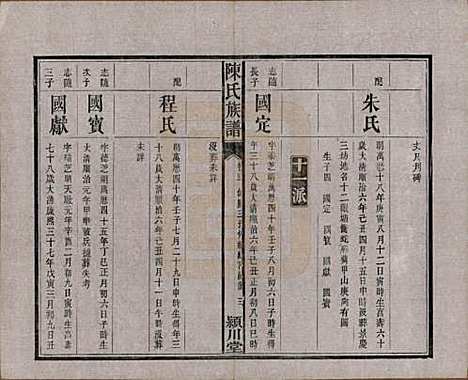 丈尺用碑
配
朱氏
明萬曆十八年庚寅八月十二日寅時生享壽六十
歲大清順治六年己丑四月十五日申時歿縣景慶
三坊地名十二碭黃蛇形葬甲山庚向有碑
生子四 國定 國 國獻 國寶
十一派
志隨
長子
國定
字 明萬曆四十年壬子八月初六日子時生
年三十八歲大清順治六年己丑四月初八日
歿葬未詳
陳氏族譜
三
潁川堂
配
程氏
明萬曆四十年壬子七月二十九日申時生得年三
十八歲大清順治六年己丑四月十一日午時歿葬
未詳
志隨
次子
國寶
字德芝明萬曆四十五年丁巳正月初六日子時生
大清順治元年甲申被兵擄歸失考
志隨
三子
國獻
字瑞芝明天啟元年辛酉二月初九日酉時生享壽
七十八歲大清康熙三十七年戊寅三月初九日丑